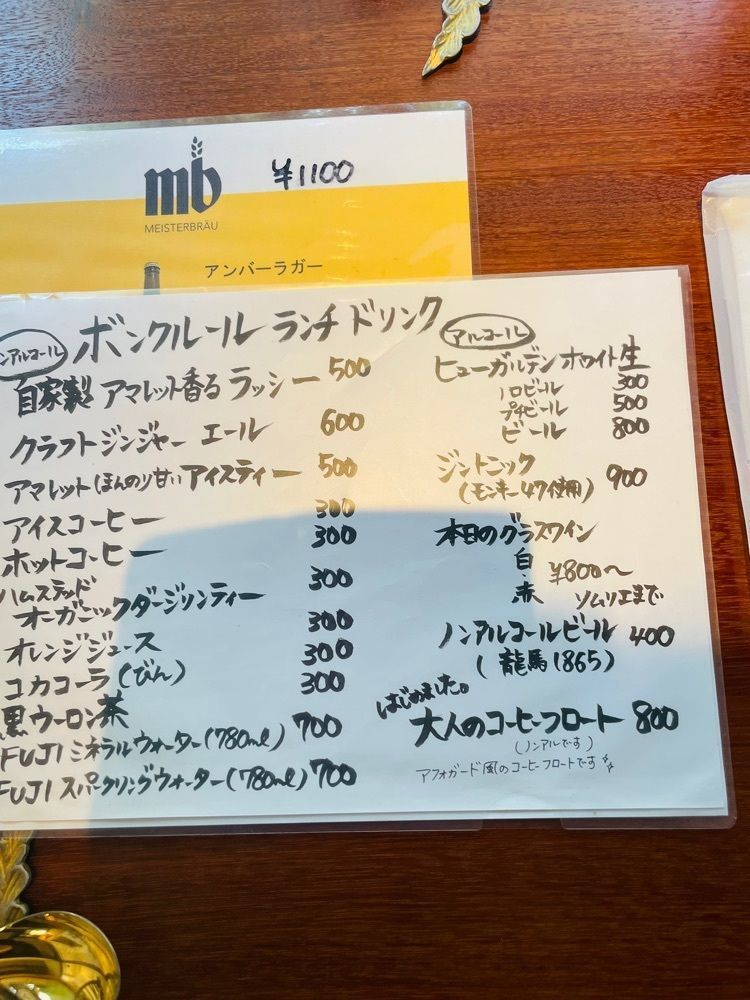 mb
¥1100
MEISTERBRÄU
アンバーラガー
ボンクルール ランチドリンク
ンアルコール
自家製 アマレット香る ラッシー 500
クラフトジンジャー エール 600
アマレットほんのり甘い アイスティー 500
アイスコーヒー 300
ホットコーヒー 300
ハムステッド
オーガニックダージリンティー 300
オレンジジュース 300
コカコーラ(びん) 300
黒ウーロン茶 300
FUJIミネラルウォーター(780ml) 700
FUJIスパークリングウォーター(780ml) 700
アルコール
ヒューガルデンホワイト生
ハロビール 300
プチビール 500
ビール 800
ジントニック 900
(モンキー47使用)
本日のグラスワイン
白 ¥800〜
赤 ソムリエまで
ノンアルコールビール 400
(龍馬1865)
はじめました。
大人のコーヒーフロート 800
(ノンアルです)
アフォガード風のコーヒーフロートです